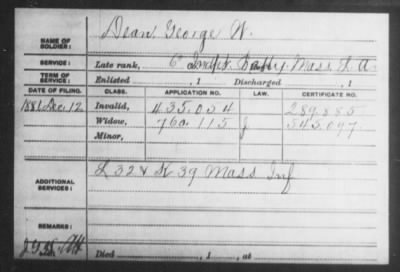 NAME OF SOLDIER: Dean, George W.
SERVICE: Late rank, Batty. Mass. L. A.
TERM OF SERVICE: Enlisted , 1 Discharged , 1
DATE OF FILING. CLASS. APPLICATION NO. LAW. CERTIFICATE NO.
1881 Dec. 12 Invalid, 435.034 289.885
Widow, 760.115 J 545.097
Minor,
ADDITIONAL SERVICES: L 32 & K 39 Mass Inf
REMARKS:
Died , 1 , at